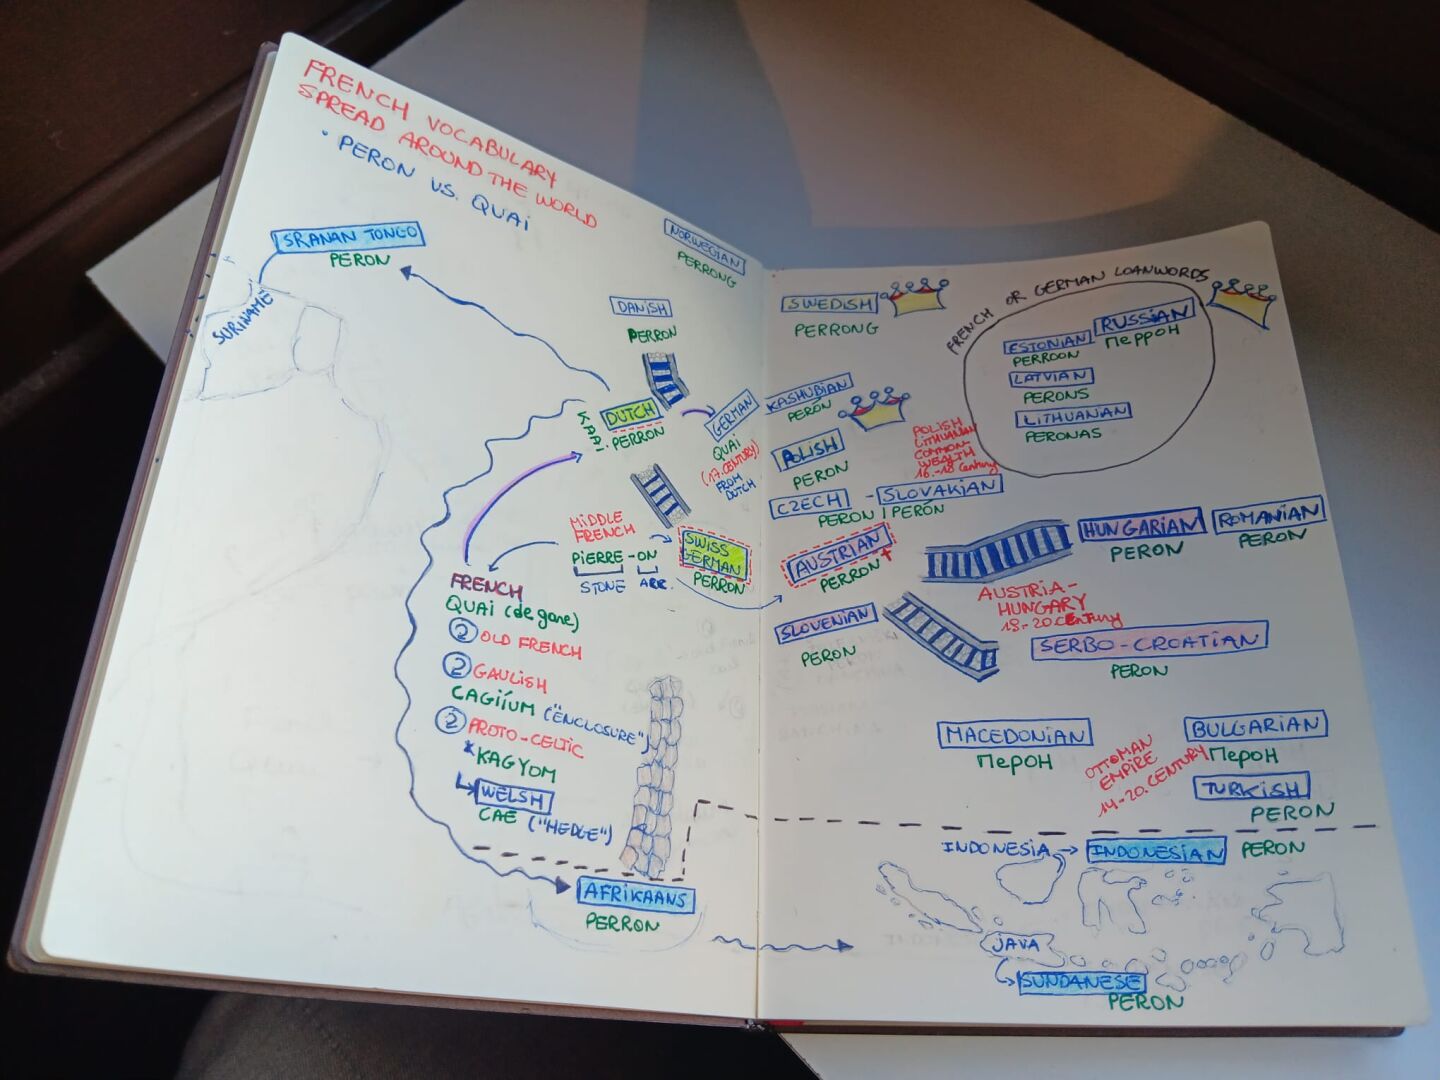 FRENCH VOCABULARY
SPREAD AROUND THE WORLD
• PERON VS. QUAI
SRANAN TONGO
PERON
SURINAMÉ
NORWEGIAN
PERRONG
DANISH
PERRON
DUTCH
KAAI
PERRON
GERMAN
QUAI
(17. CENTURY)
FROM
DUTCH
MIDDLE
FRENCH
PIERRE-ON
STONE ARR.
SWISS
GERMAN
PERRON
FRENCH
QUAI (de gare)
2 OLD FRENCH
2 GAULISH
CAGIÍUM ("ENCLOSURE")
2 PROTO-CELTIC
*KAGYOM
WELSH
CAE ("HEDGE")
AFRIKAANS
PERRON
SWEDISH
PERRONG
FRENCH OR GERMAN LOANWORDS
RUSSIAN
ПеРРОН
ESTONIAN
PERROON
LATVIAN
PERONS
LITHUANIAN
PERONAS
KASHUBIAN
PERÓN
POLISH
PERON
POLISH
LITHUANIAN
COMMON-
WEALTH
16.-18 Century
CZECH - SLOVAKIAN
PERON | PERÓN
AUSTRIAN
PERRON +
HUNGARIAN
PERON
ROMANIAN
PERON
AUSTRIA-
HUNGARY
18-20 CENTURY
SLOVENIAN
PERON
SERBO-CROATIAN
PERON
MACEDONIAN
ПеРОН
BULGARIAN
ПеРОН
OTTOMAN
EMPIRE
14-20. CENTURY
TURKISH
PERON
INDONESIA → INDONESIAN PERON
JAVA
SUNDANESE
PERON